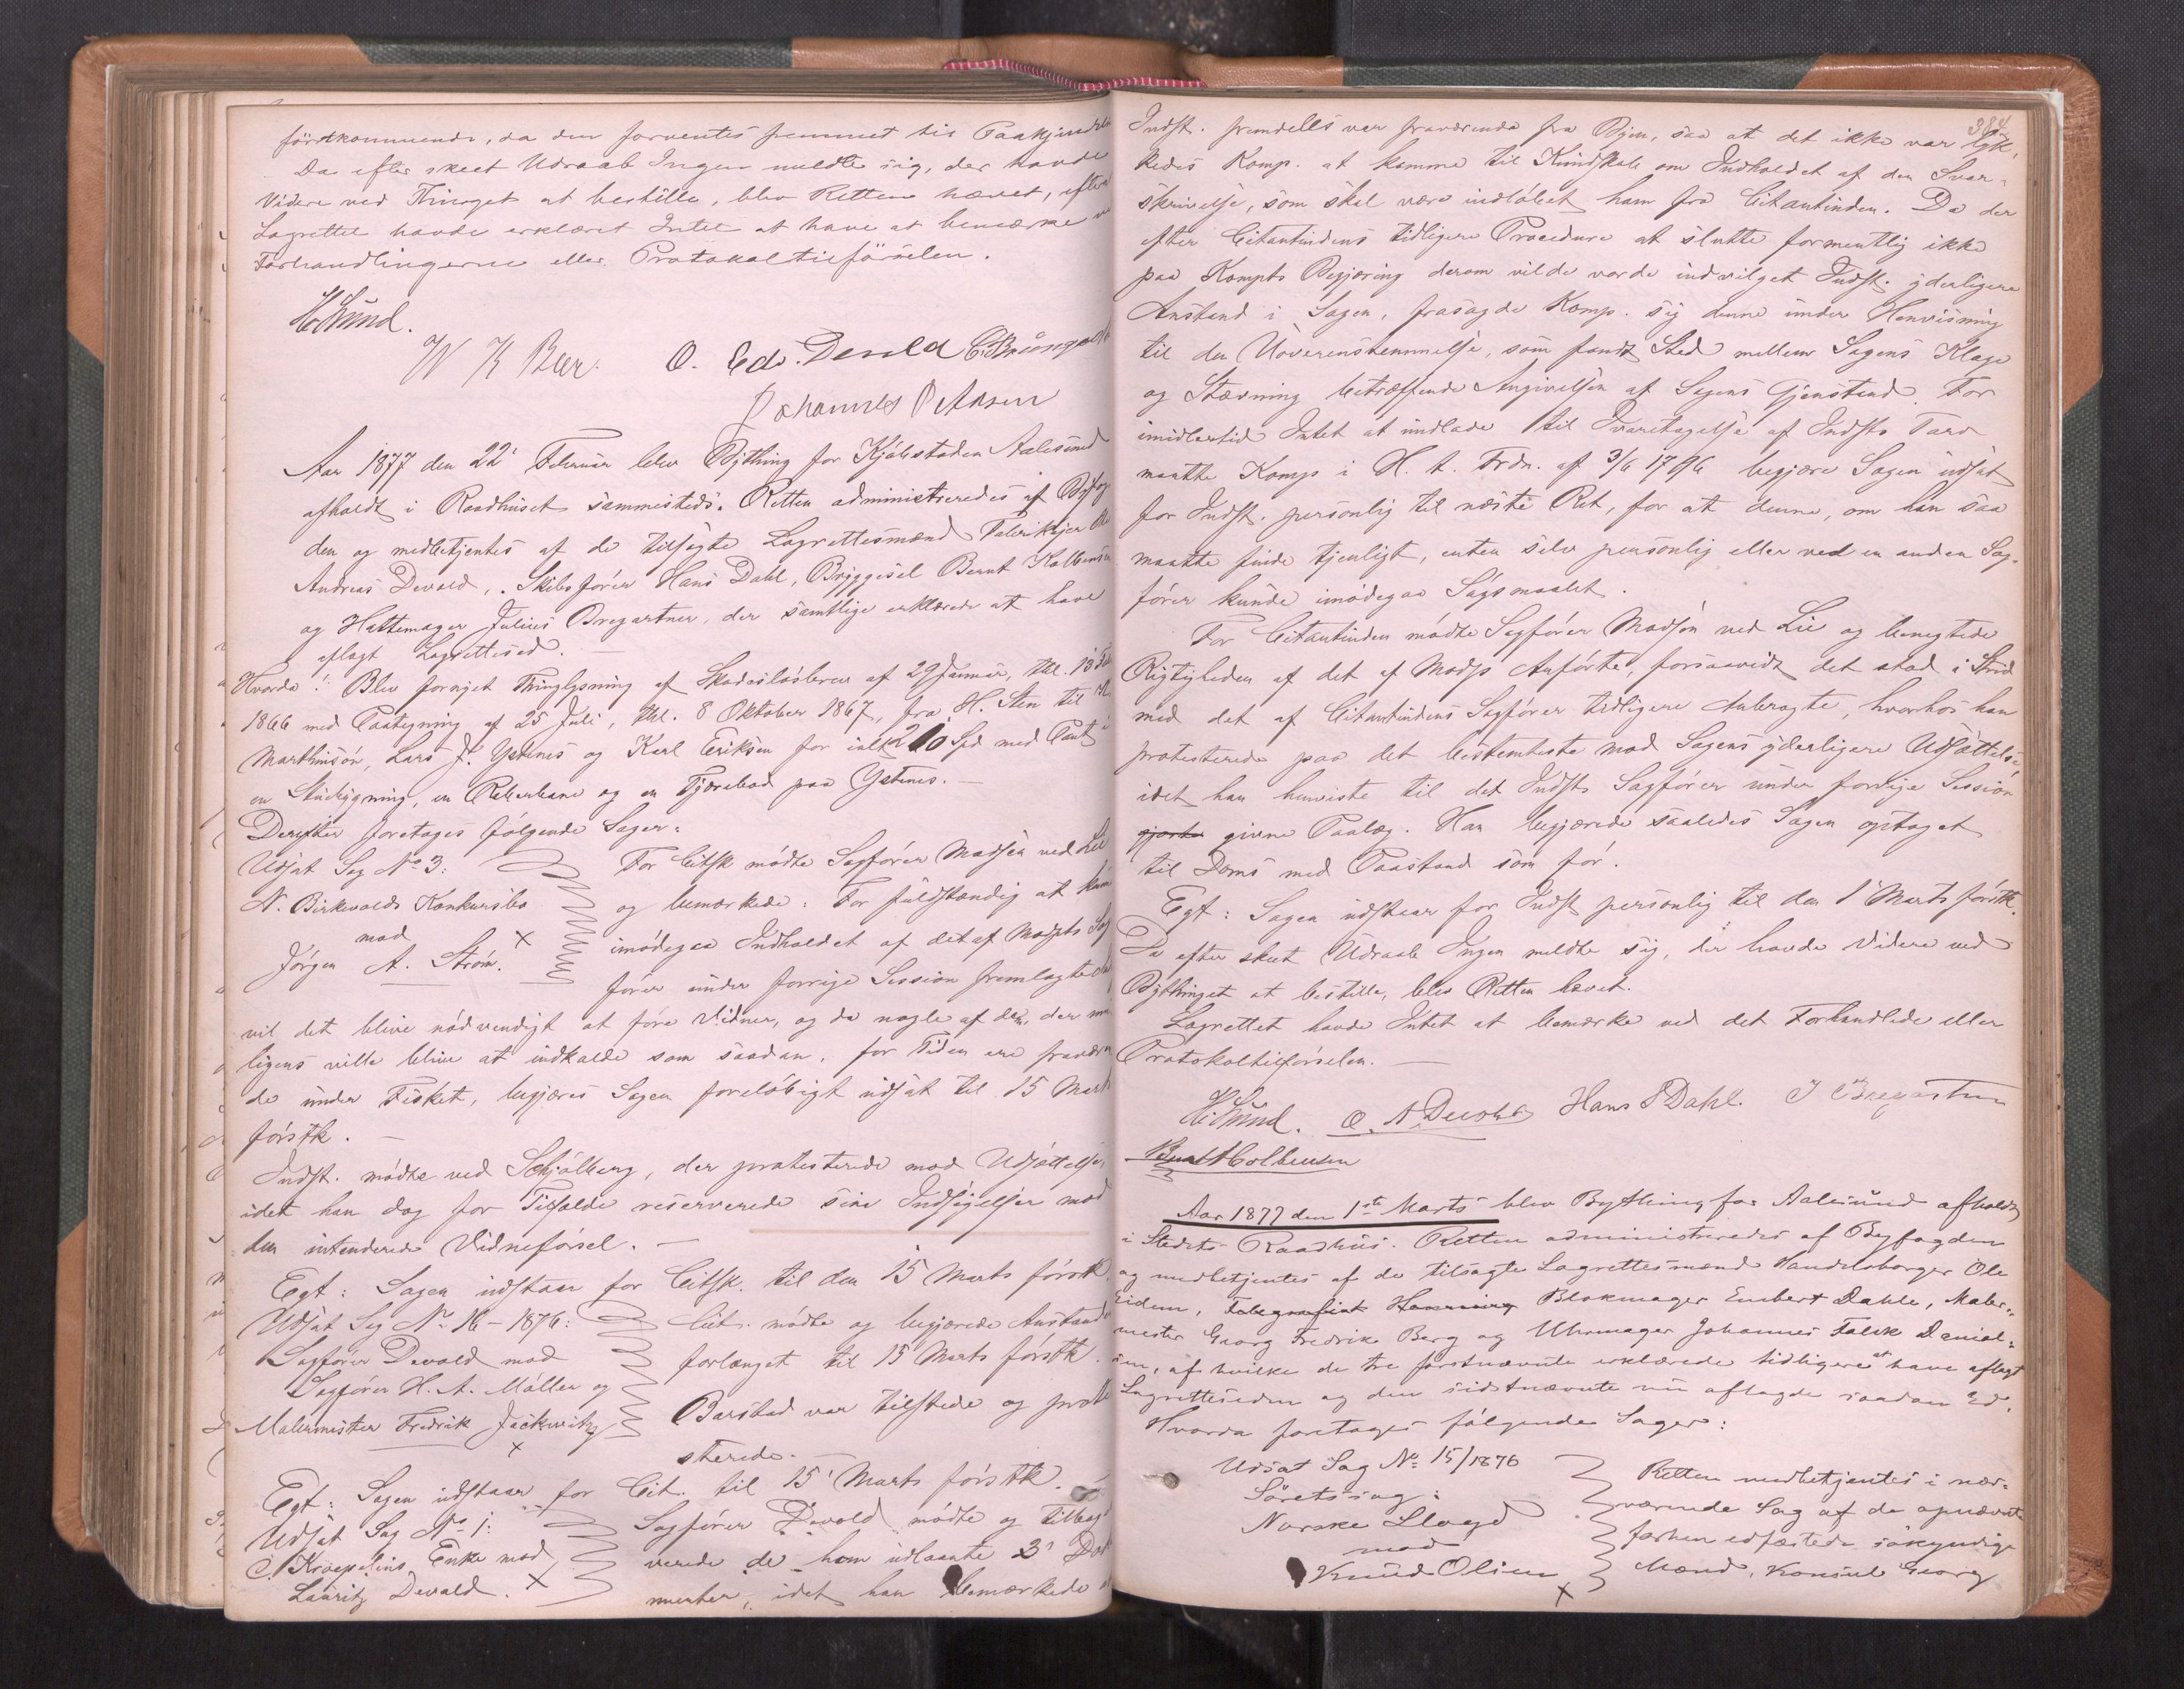 förstkommende, da den forventes fremmet til Paakjendelse
Da efter skeet Udraab Ingen meldte sig, der havde
Videre ved Thinget at bestille, blev Retten hævet, efterat
Lagrettet havde erklæret Intet at have at bemærke ved
Forhandlingerne eller Protokoltilførselen.
HLund.
W K Beer. O. Edv. Devold
Johannes Petersen
Aar 1877 den 22' Februar blev Bything for Kjøbstaden Aalesund
afholdt i Raadhuset sammesteds. Retten administreredes af Byfog
den og medbetjentes af de tilsagte Lagrettesmænd
Andreas Devold, Skibsfører Hans Dahl, Bryggesel Bernt Kolbensen
og Hattemager Julius Bregartner, der samtlige erklærede at have
aflagt Lagretteed.
Hvorda: Blev fornyet Thinglysning af Skadesløsbrev af 29 Januar, thl. 13
1866 med Paategning af 25 Juli, thl. 8 Oktober 1867, fra H. Sten til
Marthinsøn, Lars J. Ystenes og Karl Eriksen for ialt 210 Spd med Pant i
en Stuebygning, en Reberbane og en Tjærebod paa Ystenes.
Derefter foretages følgende Sager:
Udsat Sag No 3:
N. Birkevolds Konkursbo
mod
Jørgen A. Strøm. x
For Citsk. mødte Sagfører Madsen ved Lie
og bemærkede: For fuldstændig at kunne
imødegaa Indholdet af det af Modpts Sag
fører under forrige Session fremlagte
vil det blive nødvendigt at føre Vidner, og da nogle af dem, der
ligens ville blive at indkalde som saadan, for Tiden ere fraværen
de under Fisket, begjæres Sagen foreløbigt udsat til 15 Marts
førstk.
Indst. mødte ved Schjølberg, der protesterede mod Udsættelse,
idet han dog for Tilfælde reserverede sine Indsigelser mod
den intenderede Vidneførsel.
Egt: Sagen udstaar for Citsk. til den 15 Marts førstk.
Udsat Sag No 16 - 1876:
Sagfører Devold mod
Sagfører H. A. Møller og
Malermester Fredrik Jackwitz
x
Cit. mødte og begjærede Anstanden
forlænget til 15 Marts førstk.
Barstad var tilstede og prote
sterede.
Egt: Sagen udstaar for Cit. til 15' Marts førstk.
Udsat Sag No 1:
C. Kroepeliens Enke mod
Lauritz Devold. x
Sagfører Devold mødte og tilbage
verede de ham udlaante 3' Doku
menter, idet han bemærkede at
384
Indst. fremdeles var fraværende fra Byen, saa at det ikke var lyk-
kedes Komp. at komme til Kundskab om Indholdet af den Svar-
skrivelse, som skal være indløbet ham fra Citantinden. Da der
efter Citantindens tidligere Procedure at slutte formentlig ikke
paa Kompts Begjæring derom vilde vorde indvilget Indst. yderligere
Anstand i Sagen, frasagde Komp. sig denne under Henvisning
til den Uoverensstemmelse, som fandt Sted mellem Sagens Klage
og Stævning betræffende Angivelsen af Sagens Gjenstand. For
imidlertid Intet at undlade til Varetagelse af Indsts Tarv
maatte Komp i H. t. Frdn. af 3/6 1796 begjære Sagen udsat
for Indst. personlig til næste Ret, for at denne, om han saa
maatte finde tjenligt, enten selv personlig eller ved en anden Sag-
fører kunde imødegaa Søgsmaalet.
For Citantinden mødte Sagfører Madsen ved Lie og benegtede
Rigtigheden af det af Modp Anførte, forsaavidt det stod i Strid
med det af Citantindens Sagfører tidligere Anbragte, hvorhos han
protesterede paa det bestemteste mod Sagens yderligere Udsættelse,
idet han henviste til det Indsts Sagfører under forrige Session
gjorte givne Paalæg. Han begjærede saaledes Sagen optaget
til Doms med Paastand som før.
Egt: Sagen udstaar for Indst personlig til den 1' Marts førstk.
Da efter skeet Udraab Ingen meldte sig, der havde Videre ved
Bythinget at bestille, blev Retten hævet.
Lagrettet havde Intet at bemærke ved det Forhandlede eller
Protokoltilførselen.
HLund. O. A. Devold Hans P Dahl. J Bregartner
Bernt Kolbensen
Aar 1877 den 1ste Marts blev Bything for Aalesund afholdt
i Stedets Raadhus. Retten administreredes af Byfogden
og medbetjentes af de tilsagte Lagrettesmænd Handelsborger Ole
Eidem, Telegrafist Henning Blokmager Embert Dahle, Maler-
mester Georg Fredrik Berg og Uhrmager Johannes Falck Daniel-
sen, af hvilke de tre førstnævnte erklærede tidligere at have aflagt
Lagretteseden og den sidstnævnte nu aflagde saadan Ed.
Hvorda foretages følgende Sager:
Udsat Sag No 15/1876
Søretssag:
Norske Lloyd
mod
Knud Olsen
x
Retten medbetjentes i nær-
værende Sag af de opnævnte
forhen edfæstede søkyndige
Mænd, Konsul Georg